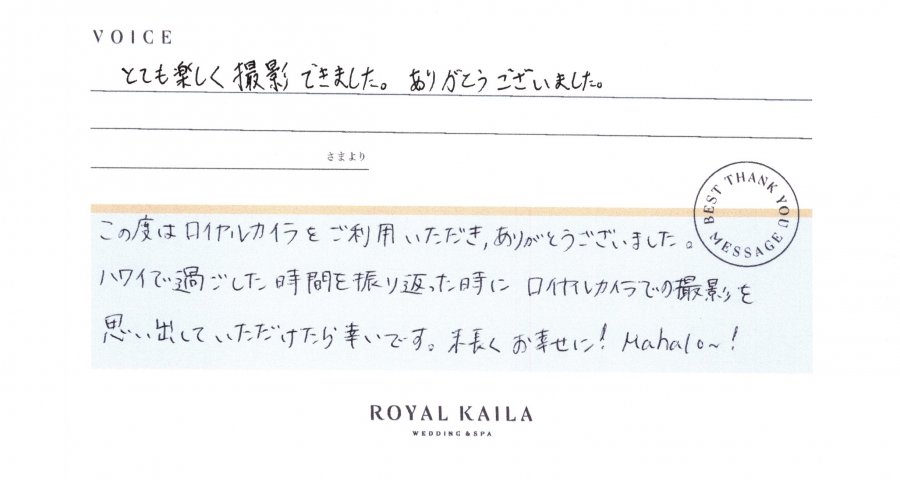 VOICE
とても楽しく撮影できました。ありがとうございました。
さまより
BEST THANK YOU MESSAGE
この度はロイヤルカイラをご利用いただき,ありがとうございました。
ハワイで過ごした時間を振り返った時に ロイヤルカイラでの撮影を
思い出していただけたら幸いです。末長くお幸せに! Mahalo~!
ROYAL KAILA
WEDDING & SPA